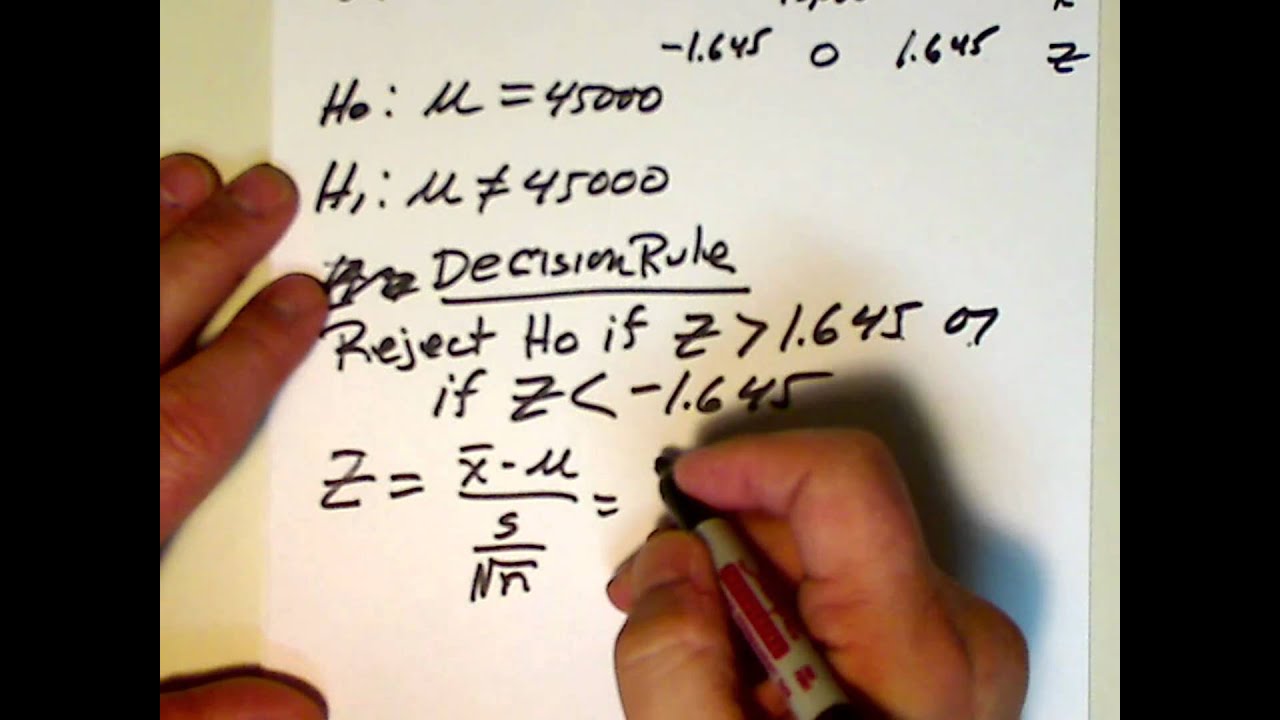 -1.645 0 1.645 z
Ho: μ = 45000
H₁: μ ≠ 45000
Decision Rule
Reject Ho if Z > 1.645 or
if Z < -1.645
Z = (x̄ - μ) / (s / √n) =